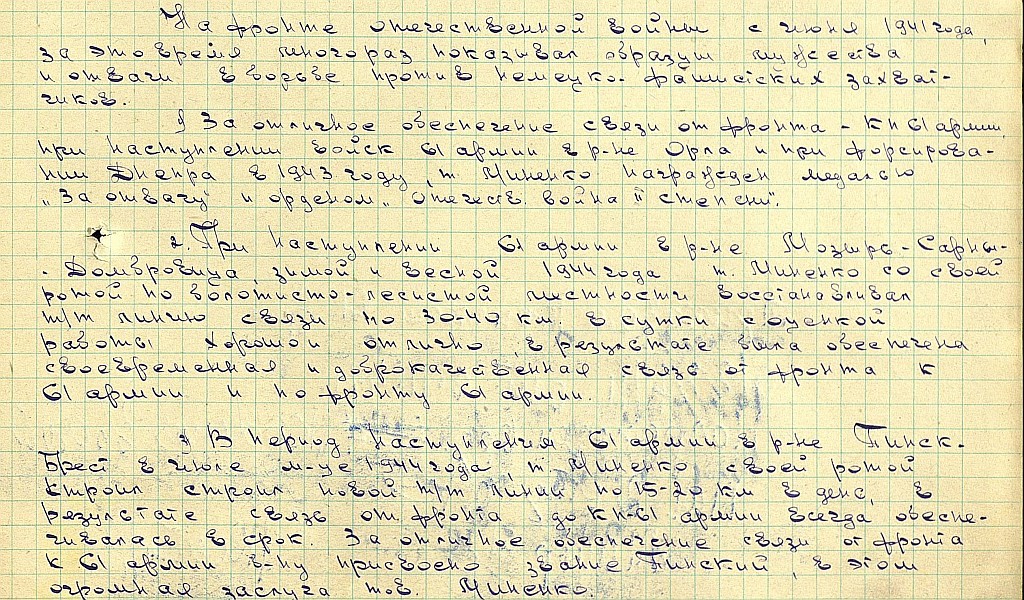 На фронте отечественной войны с июня 1941 года,
за это время много раз показывал образцы мужества
и отваги в борьбе против немецко-фашистских захват-
чиков.
1 За отличное обеспечение связи от фронта - КП 61 армии,
при наступлении войск 61 армии в р-не Орла и при форсирова-
нии Днепра в 1943 году, т. Чиненко награжден медалью
„За отвагу" и орденом „Отечеств. война II степени".
2. При наступлении 61 армии в р-не Мозырь - Сарны -
- Домбровица, зимой и весной 1944 года т. Чиненко со своей
ротой по болотисто-лесистой местности восстанавливал
т/т линию связи по 30-40 км. в сутки с оценкой
работы хорошо и отлично, в резултате была обеспечена
своевременная и доброкачественная связь от фронта к
61 армии и по фронту 61 армии.
3 В период наступления 61 армии в р-не Пинск-
Брест в июле м-це 1944 года, т. Чиненко своей ротой
строил строил новой т/т линии по 15-20 км в день, в
резултате связь от фронта до КП-61 армии всегда обеспе-
чивалась в срок. За отличное обеспечение связи от фронта
к 61 армии б-ну присвоено звание Пинский, в этом
огромная заслуга тов. Чиненко.